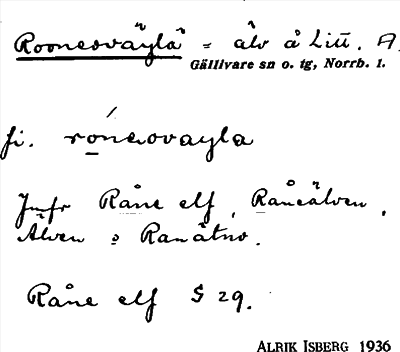 Rooneoväylä = älv å Litt. A.
Gällivare sn o. tg, Norrb. l.
fi. róneovayla
Jmfr Råne elf, Råneälven,
Älven o Ranåtno.
Råne elf S 29.
ALRIK ISBERG 1936